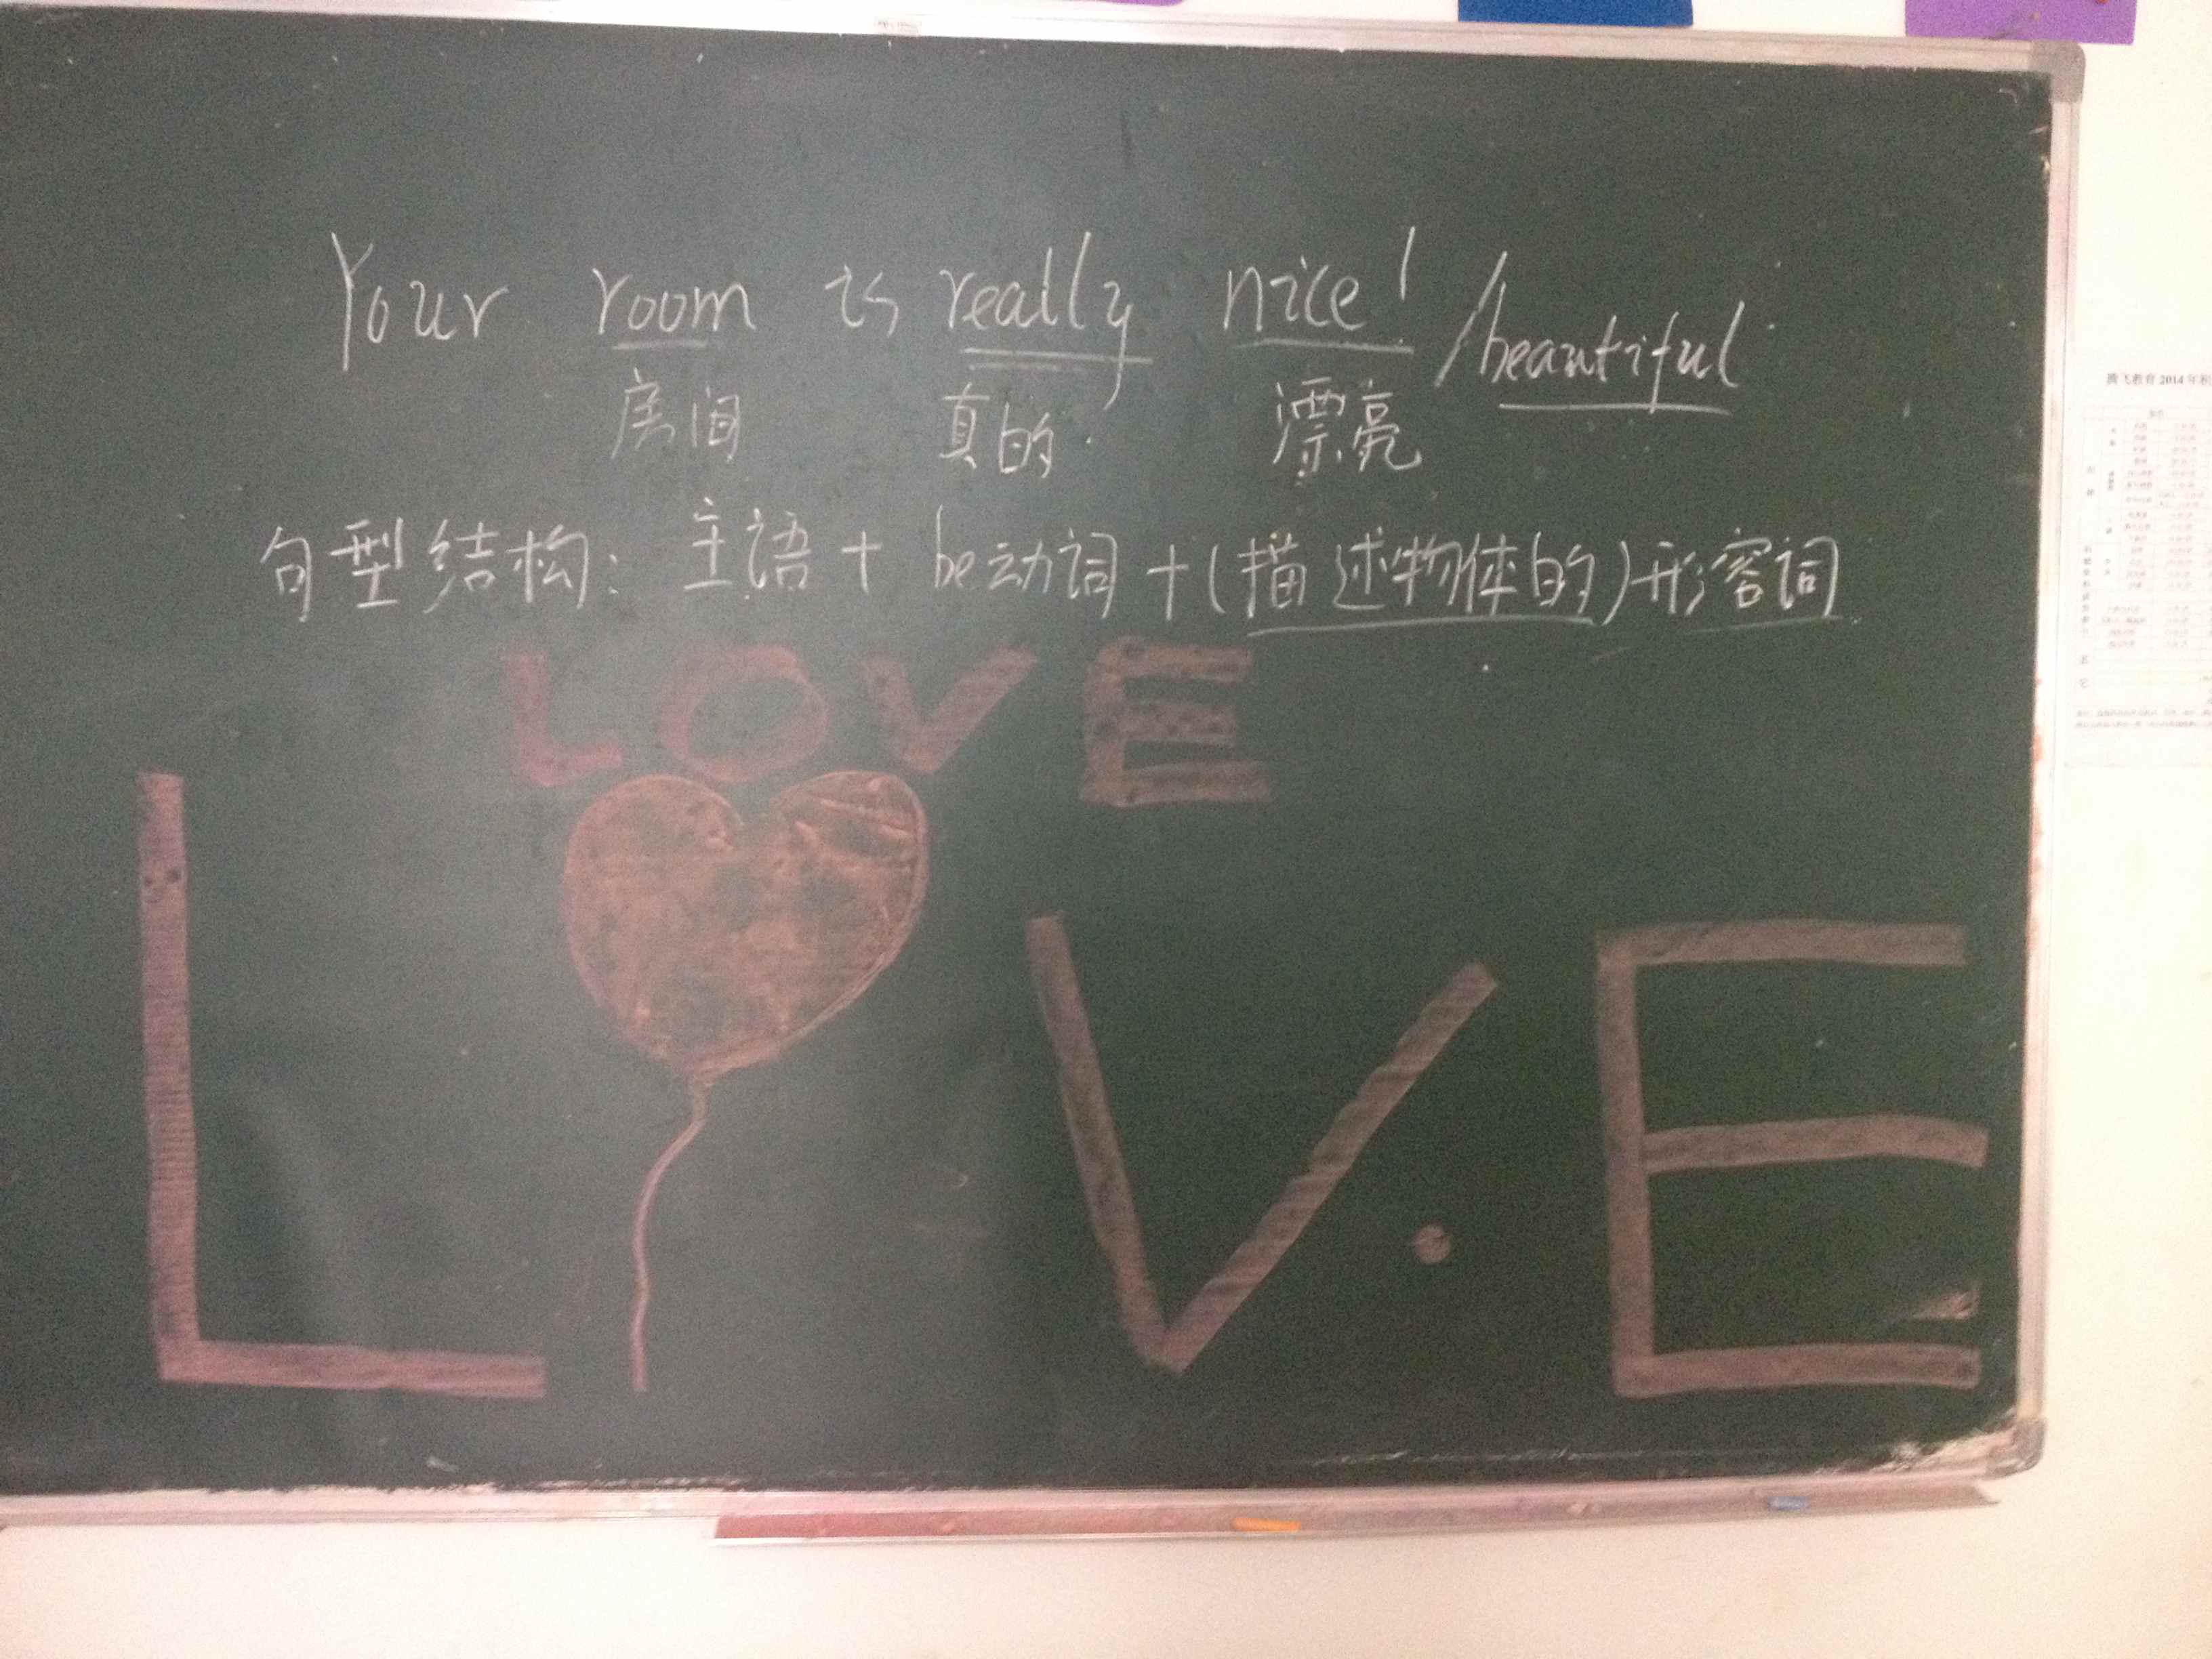 Your room is really nice! /beautiful
房间 真的 漂亮
句型结构: 主语 + be动词 + (描述物体的) 形容词
LOVE
L VE
腾飞教育 2014 年